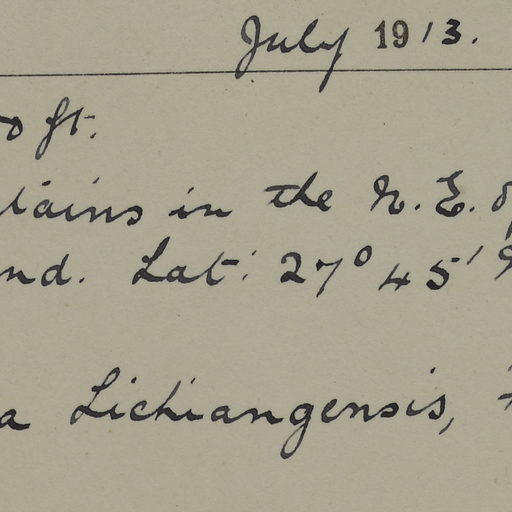 July 1913.
ft.
tains in the N.E. of
nd. Lat: 27° 45'
a Lichiangensis,